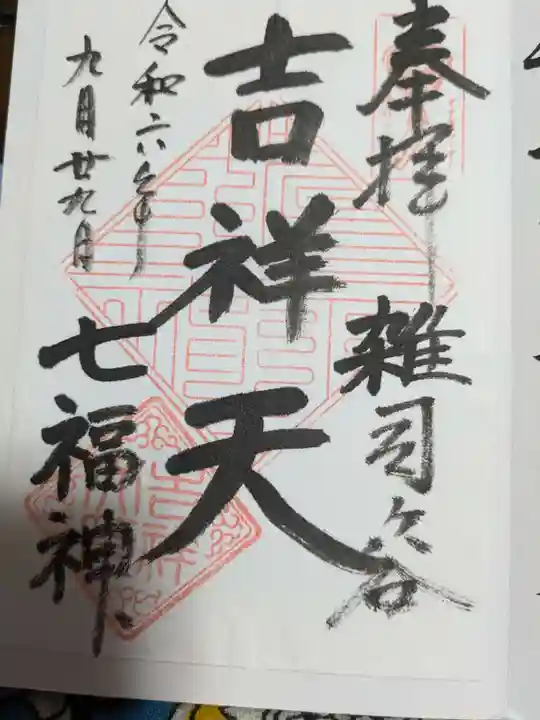 奉拝 雑司ヶ谷
吉祥天
七福神
令和六年
九月廿九日